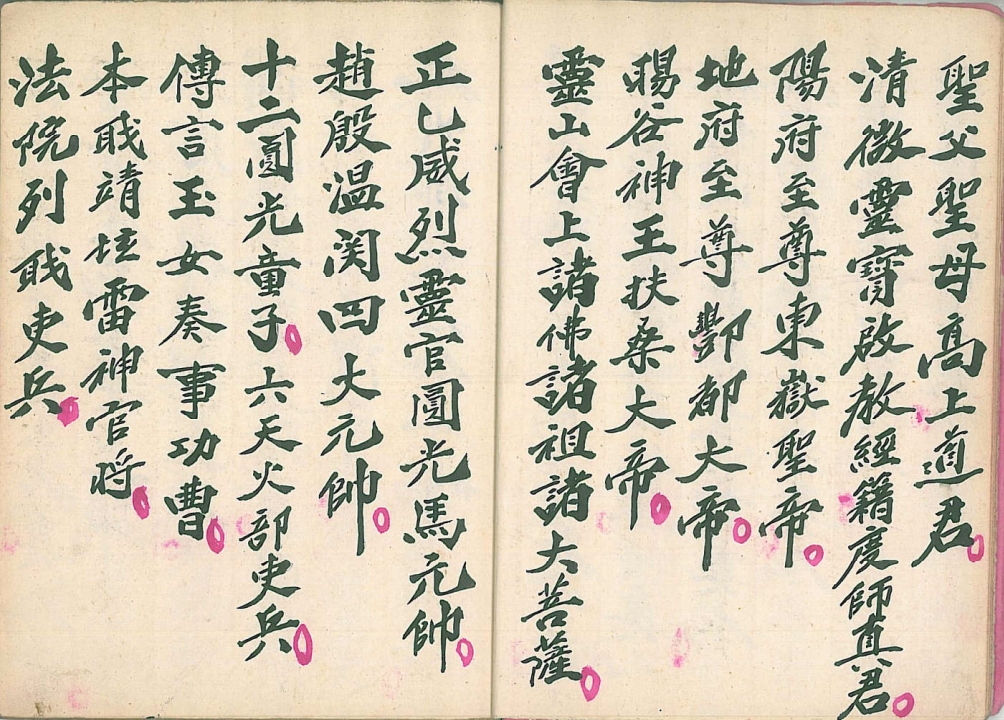 聖父聖母高上道君
清微靈寳啟教經籍度師真君
陽府至尊東嶽聖帝
地府至尊酆都大帝
暘谷神王扶桑大帝
靈山會上諸佛諸祖諸大菩薩
正乙威烈靈官圓光馬元帥
趙殷温関四大元帥
十二圓光童子六天火部吏兵
傳言玉女奏事功曹
本戝靖垃雷神官將
法院列戝吏兵